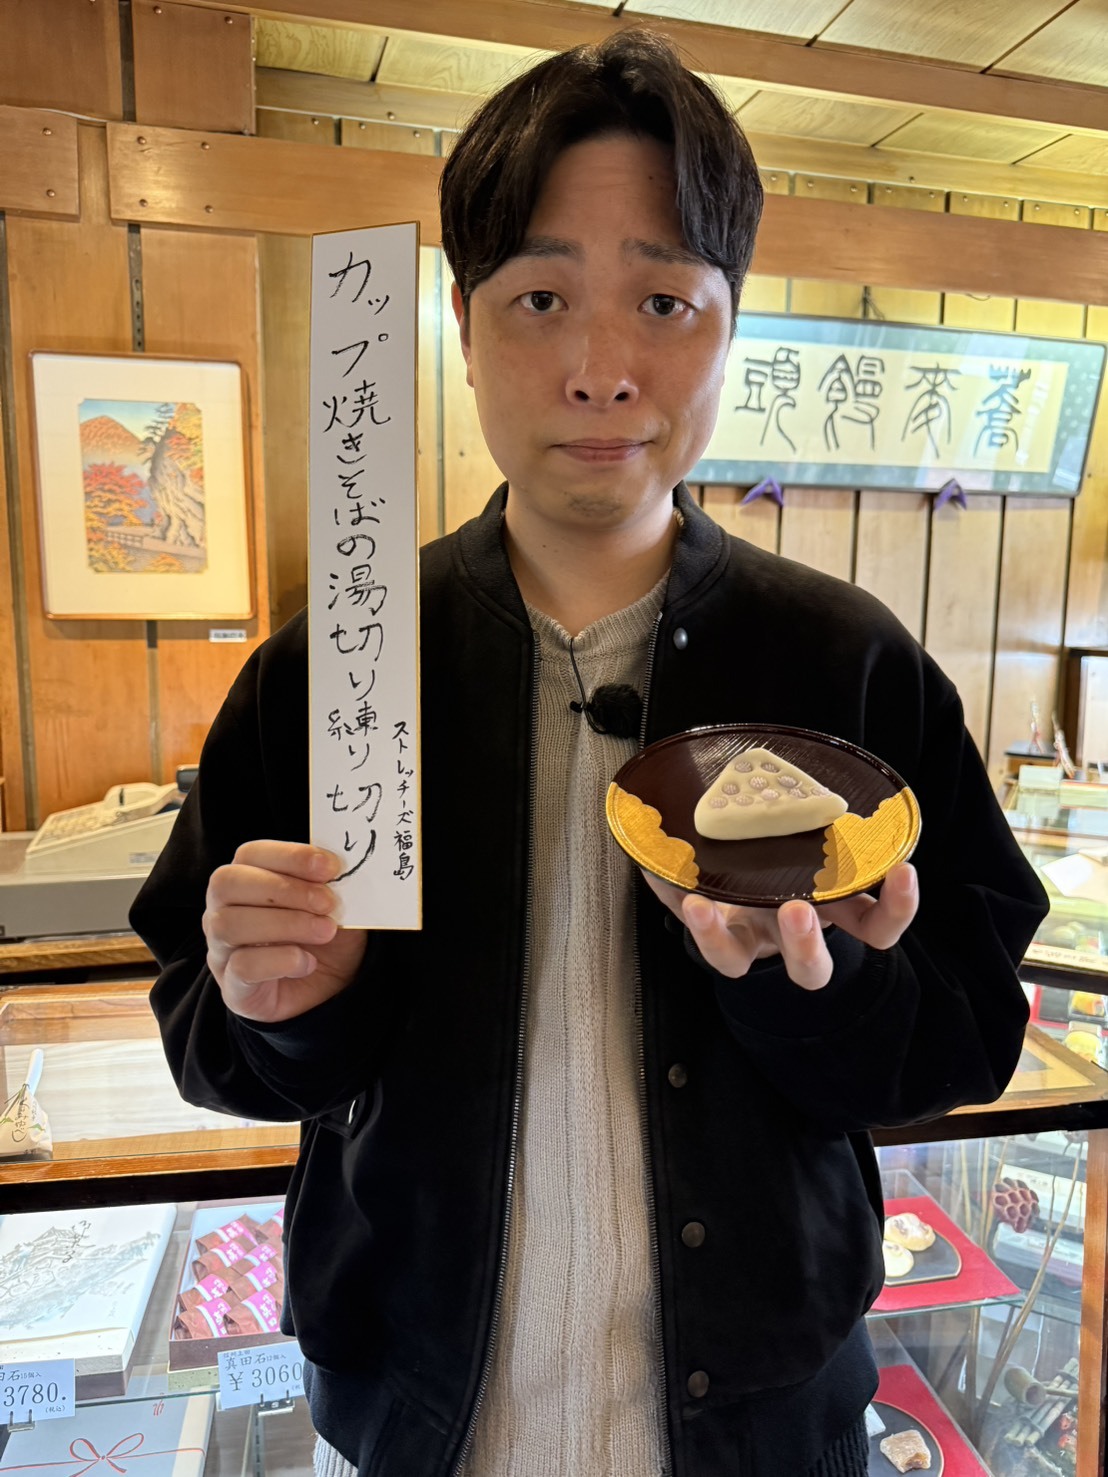 カップ焼きそばの湯切り練り切り
ストレッチーズ福島
蕎麦饅頭
田石15個入
3780.
(税込)
真田石12個入
¥3060